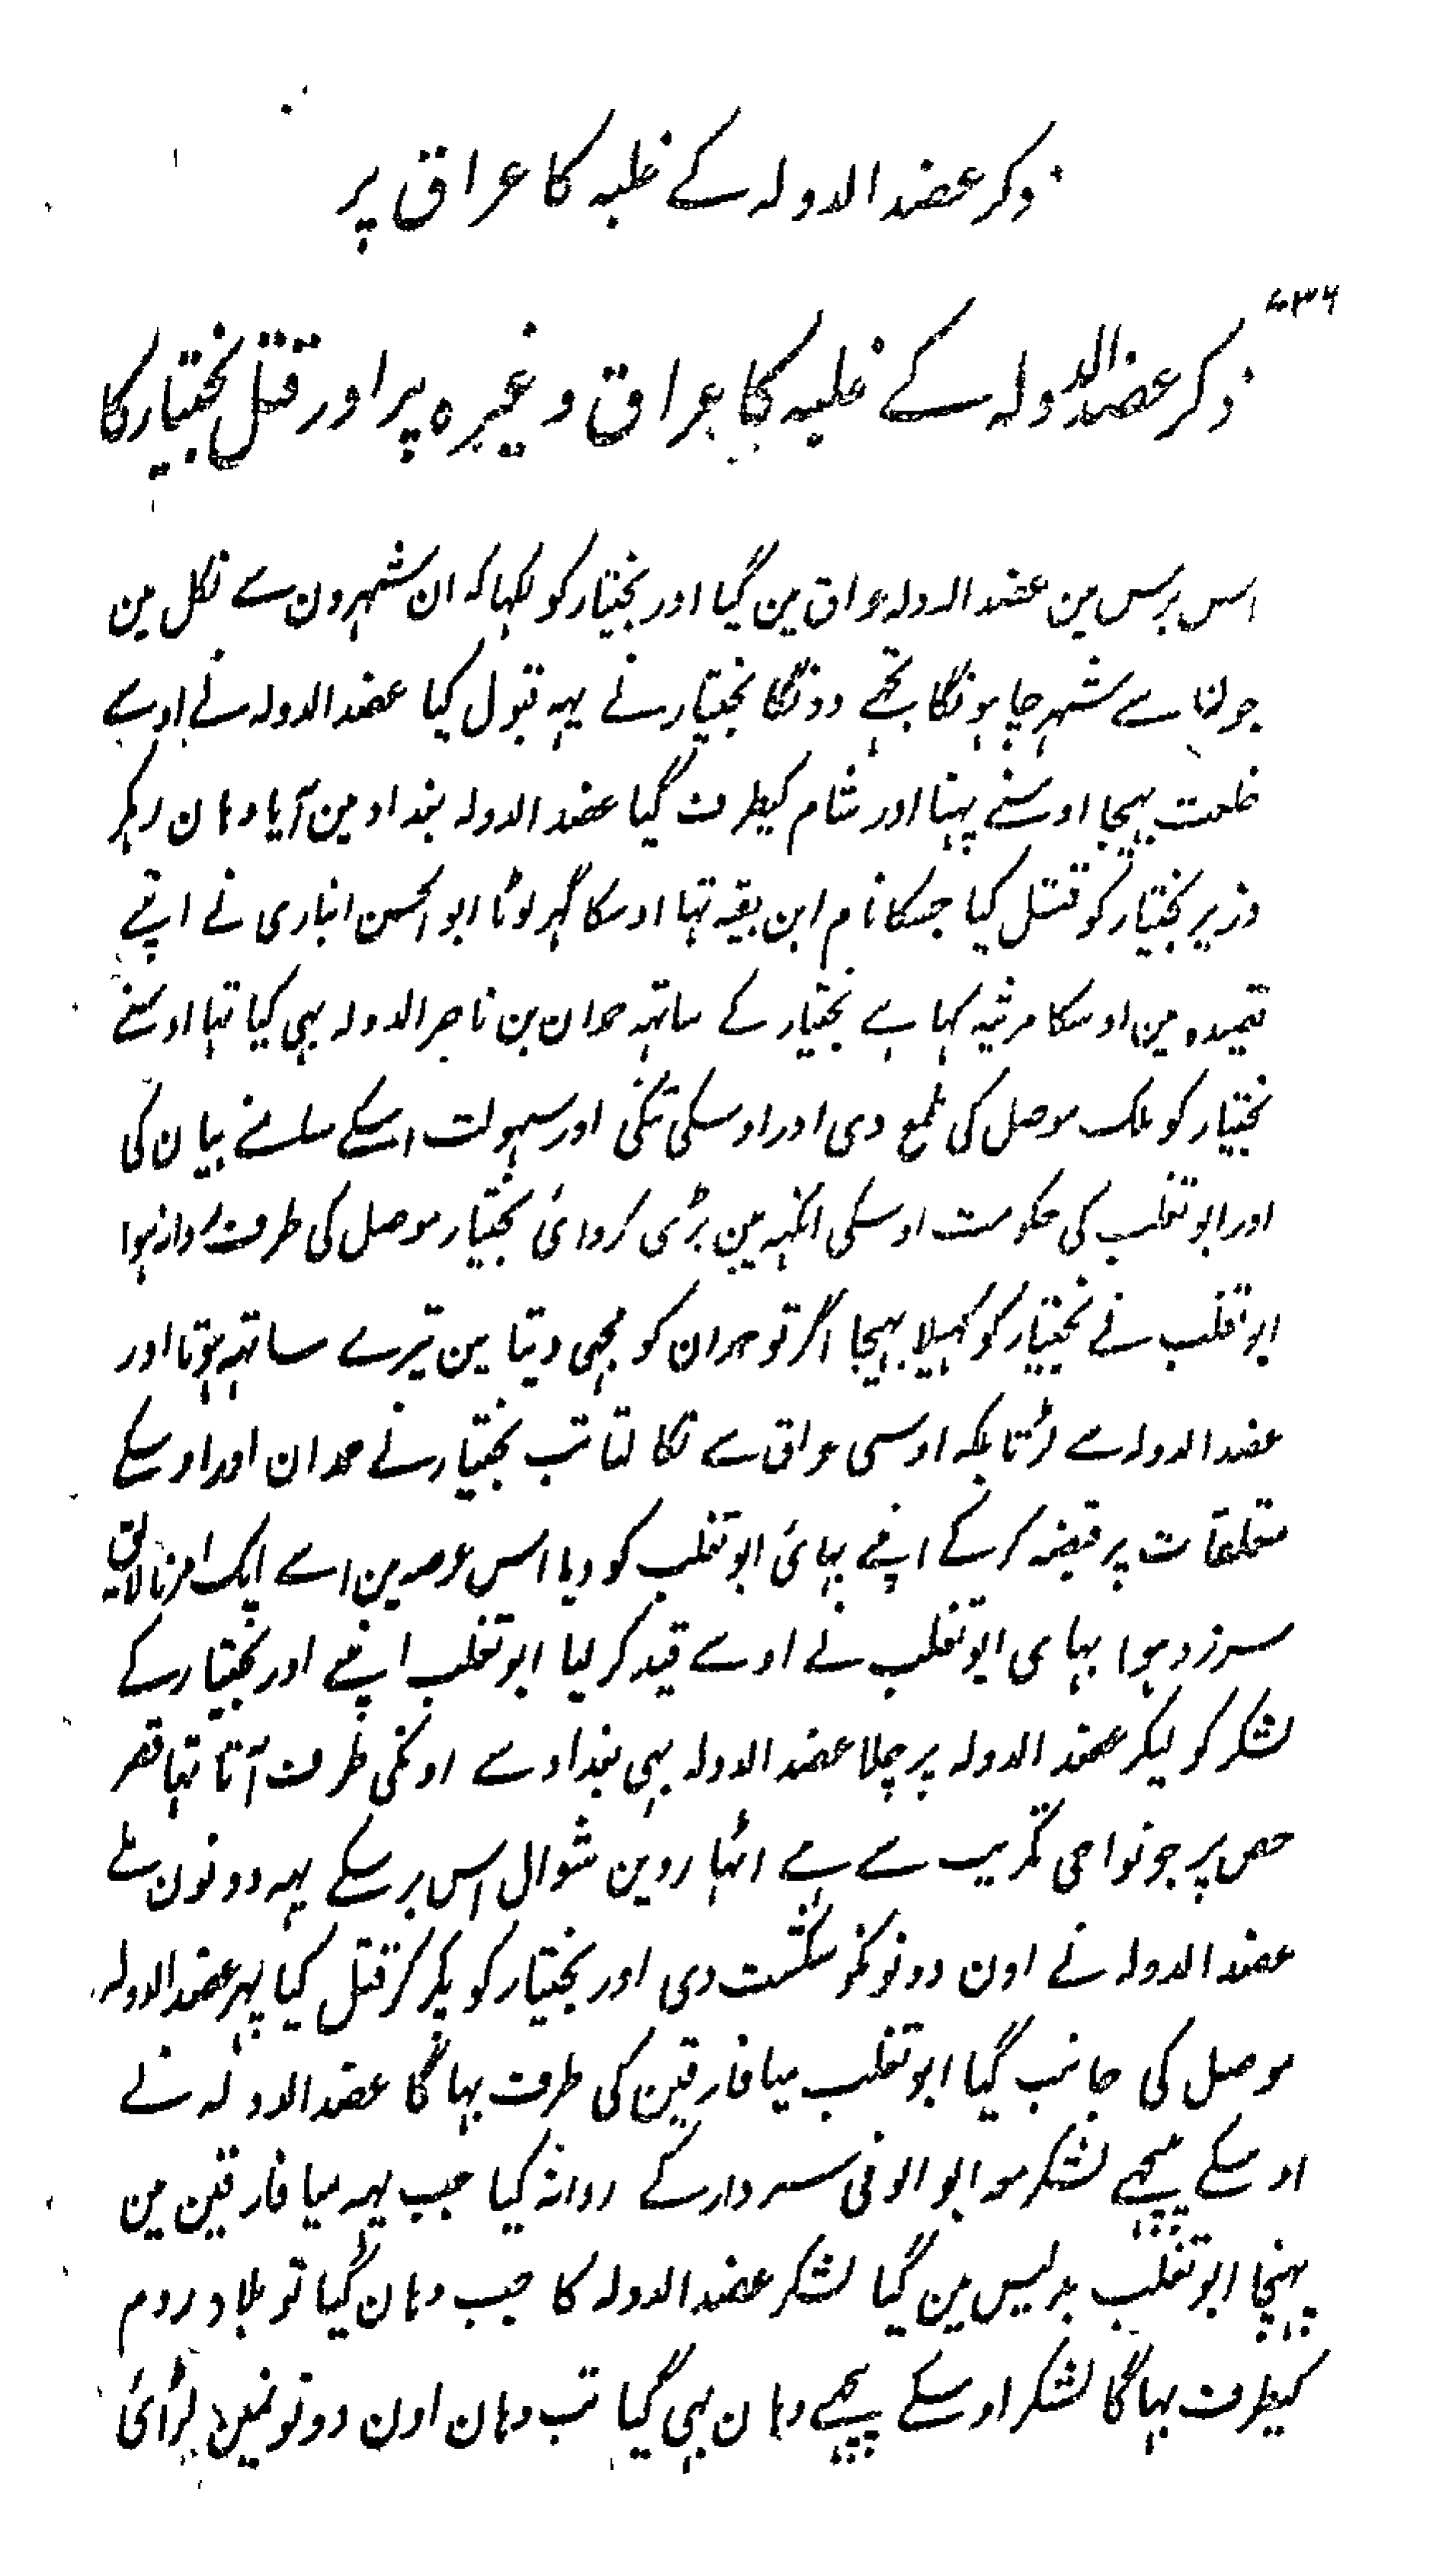 ذکر عضد الدولہ کے غلبہ کا عراق پر
ذکر عضد الدولہ کے غلبہ کا عراق وغیرہ پر اور قتل بختیار کا
اس برس مین عضد الدولہ عراق مین گیا اور بختیار کو لکہا کہ ان شہرون سے نکل مین
جونسا سے شہر چاہونگا تجہے دونگا بختیار نے یہہ قبول کیا عضد الدولہ نے اوسے
خلعت بہیجا اوسنے پہنا اور شام کیطرف گیا عضد الدولہ بغداد مین آیا وہان رہکر
وزیر بختیار کو قتل کیا جسکا نام ابن بقیہ تہا اوسکا گہر لوٹا ابو الحسن انباری نے اپنے
قصیدہ مین اوسکا مرثیہ کہا ہے بختیار کے ساتہہ حمدان بن ناصر الدولہ بہی گیا تہا اوسنے
بختیار کو ملک موصل کی طمع دی اور اوسکی تنگی اور سہولت اسکے سامنے بیان کی
اور ابو تغلب کی حکومت اوسکی انکہہ مین بڑی کروائی بختیار موصل کی طرف روانہ ہوا
ابو تغلب نے بختیار کو کہیلا بہیجا اگر تو حمدان کو مجہی دیتا مین تیرے ساتہہ ہوتا اور
عضد الدولہ سے لڑتا بلکہ اوسی عراق سے نکالتا تب بختیار نے حمدان اور اوسکے
متعلقات پر قبضہ کرکے اپنے بہائی ابو تغلب کو دیا اس عرصہ مین اسے ایک امر نالایق
سرزد ہوا بہای ابو تغلب نے اوسے قید کر لیا ابو تغلب اپنے اور بختیار کے
لشکر کو لیکر عضد الدولہ پر چلا عضد الدولہ بہی بغداد سے اونکی طرف آتا تہا قصر
حص پر جو نواحی تکریت سے ہے اٹہاروین شوال اس برسکے یہہ دونون ملے
عضد الدولہ نے اون دونونکو شکست دی اور بختیار کو پکڑ کر قتل کیا پہر عضد الدولہ
موصل کی جانب گیا ابو تغلب میا فارقین کی طرف بہاگا عضد الدولہ نے
اوسکے پیچہے لشکر مع ابو الوفی سردار کے روانہ کیا جب یہہ میا فارقین مین
پہنچا ابو تغلب بدلیس مین گیا لشکر عضد الدولہ کا جب وہان گیا تو بلاد روم
کیطرف بہاگا لشکر اوسکے پیچہے وہان بہی گیا تب وہان اون دونونمین لڑائی